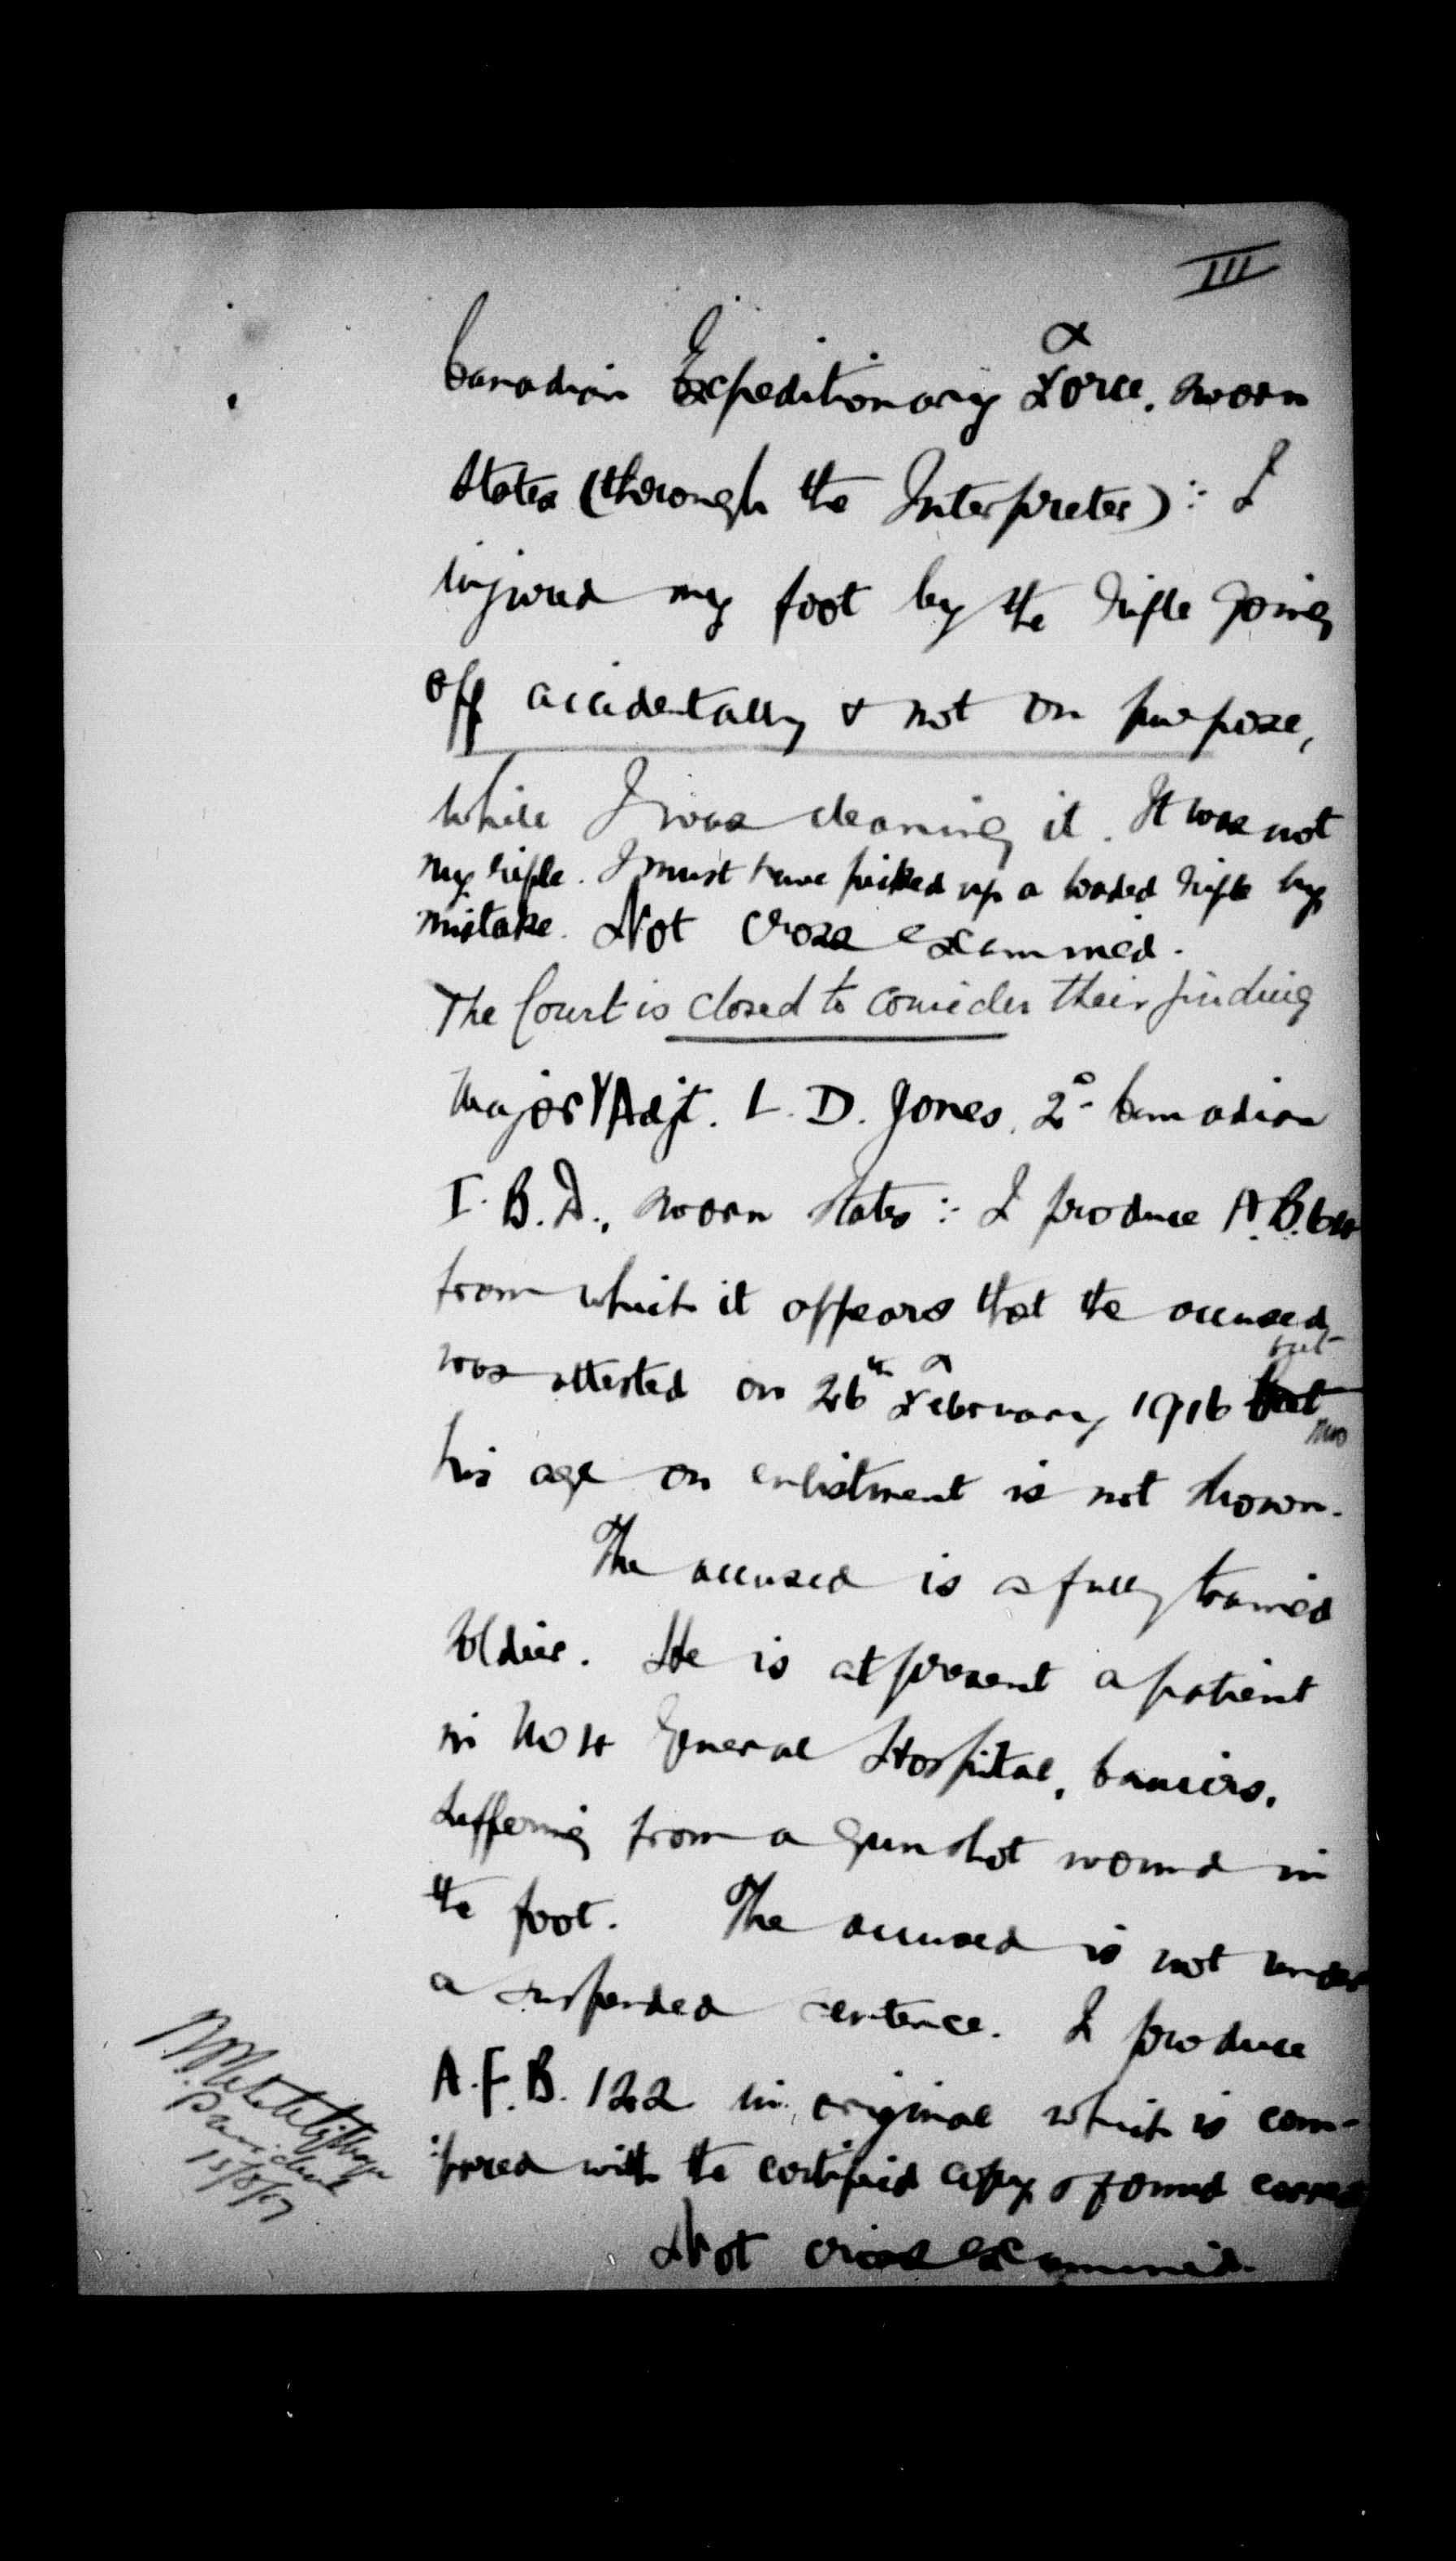 III
Canadian Expeditionary Force, sworn
states (through the Interpreter) :- I
injured my foot by the rifle going
off accidentally & not on purpose,
while I was cleaning it. It was not
my rifle. I must have picked up a loaded rifle by
mistake. Not cross examined.
The Court is closed to consider their finding
Major & Adjt. L. D. Jones, 2o Canadian
I. B. D., sworn states :- I produce A.B. 64
from which it appears that the accused
was attested on 26th February 1916 but
his age on enlistment is not shown.
The accused is a fully trained
soldier. He is at present a patient
in No 4 General Hospital, Camiers,
suffering from a gun shot wound in
the foot. The accused is not under
a suspended sentence. I produce
A.F.B. 122 in original which is com-
:pared with the certified copy & found correct
Not cross examined.
President
15/8/17